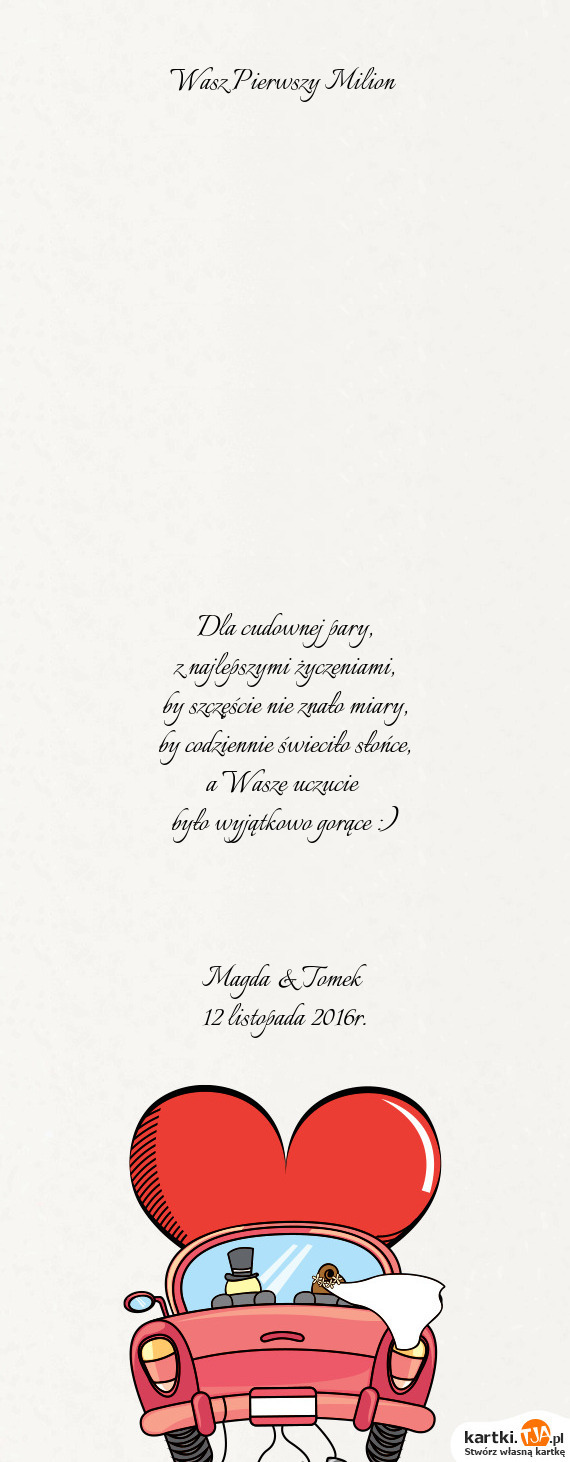 Wasz Pierwszy Milion
Dla cudownej pary,
z najlepszymi życzeniami,
by szczęście nie znało miary,
by codziennie świeciło słońce,
a Wasze uczucie
było wyjątkowo gorące :)
Magda & Tomek
12 listopada 2016r.
kartki.TJA.pl
Stwórz własną kartkę